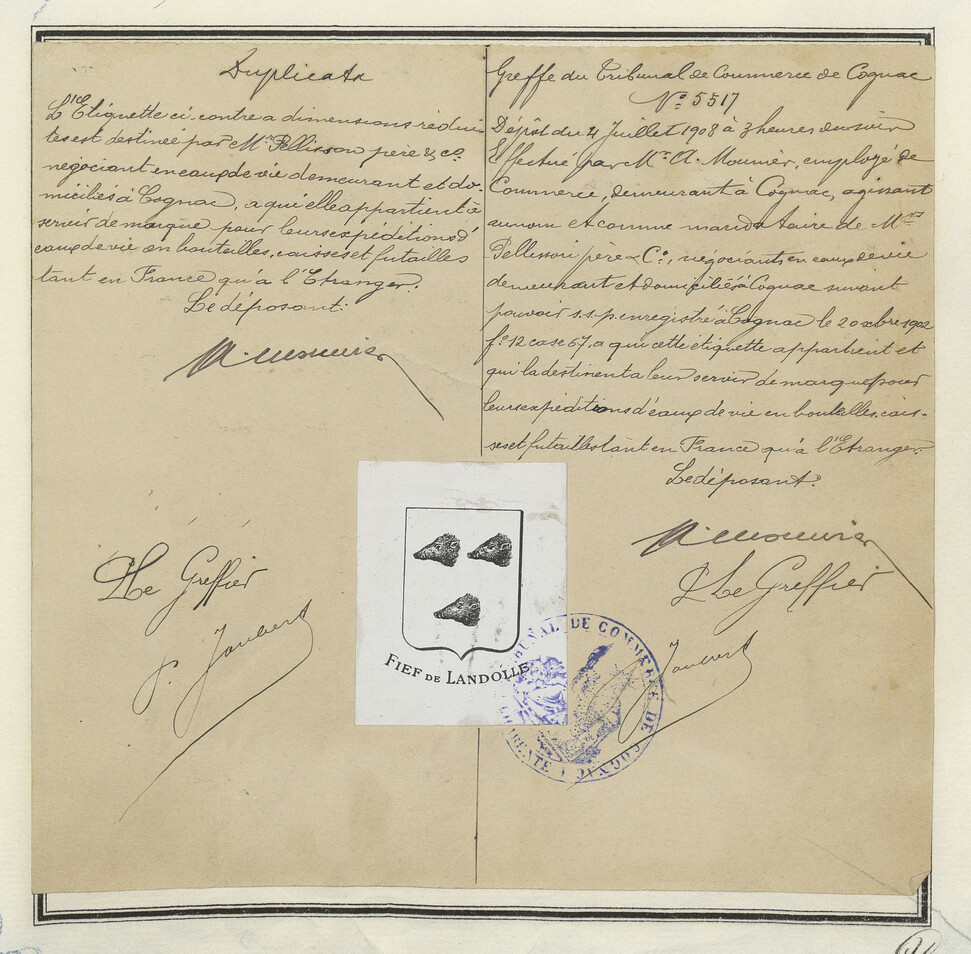 Duplicata
L'Etiquette ci-contre a dimensions rédui-
tes est destinée par Mrs Pellisson père & Co
négociant en eaux de vie demeurant et do-
miciliés à Cognac, a qui elle appartient à
servir de marque pour leurs expéditions d'
eaux de vie en bouteilles, caisses et futailles
tant en France qu'à l'Etranger.
Le déposant:
A. Mounier
Le Greffier
p. Jaubert
Greffe du Tribunal de Commerce de Cognac
No 5517
Dépôt du 4 Juillet 1908 à 3 heures du soir
Effectué par Mr A. Mounier, employé de
Commerce, demeurant à Cognac, agissant
au nom et comme mandataire de Mrs
Pellisson père & Co, négociants en eaux de vie
demeurant et domiciliés à Cognac suivant
pouvoir s.s.p. enregistré à Cognac le 20 octobre 1902
fo 12 case 67, a qui cette étiquette appartient et
qui la destinent a leur servir de marque pour
leurs expéditions d'eaux de vie en bouteilles, cais-
ses et futailles tant en France qu'à l'Etranger.
Le déposant:
A. Mounier
Le Greffier
Jaubert
FIEF DE LANDOLLE
TRIBUNAL DE COMMERCE DE COGNAC
CHARENTE